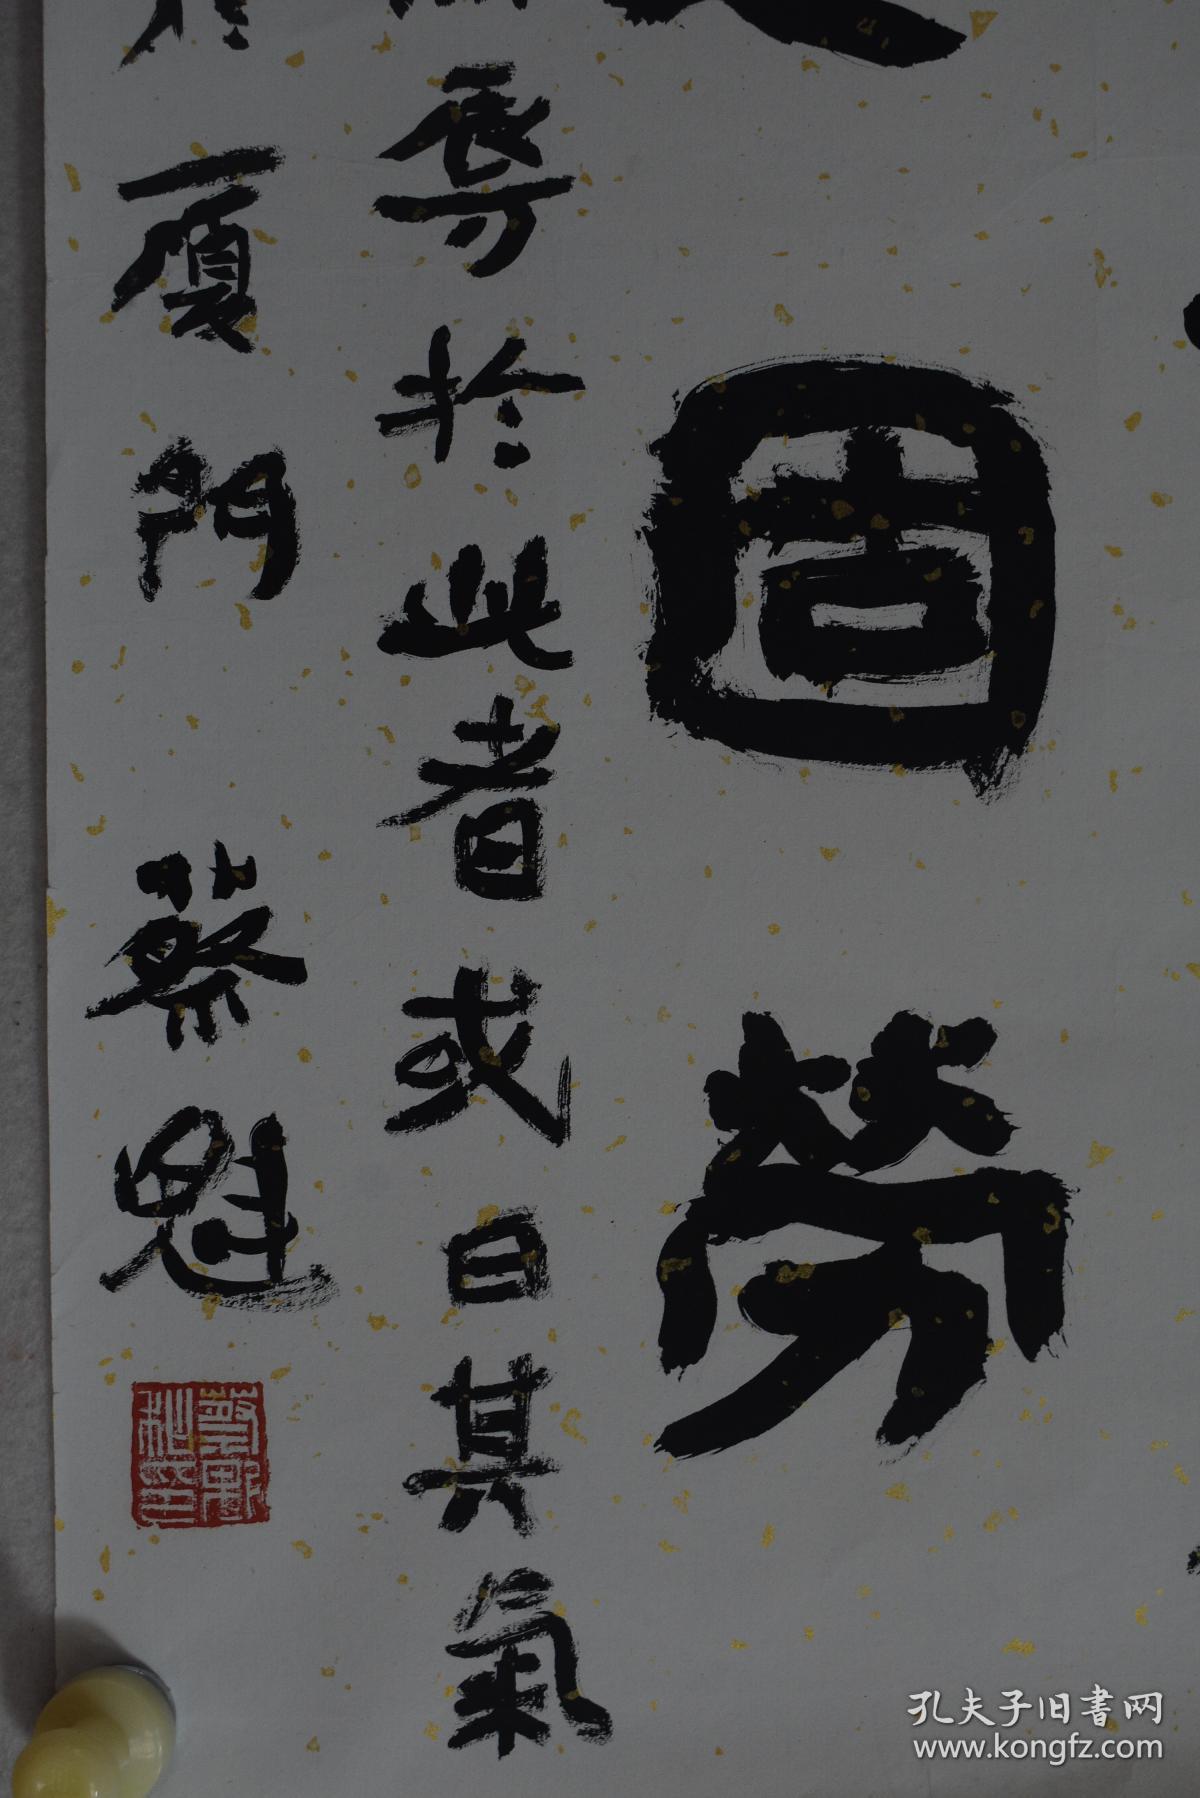 固勞
辱於此者或曰其氣
於厦門 蔡魁
孔夫子旧书网
www.kongfz.com